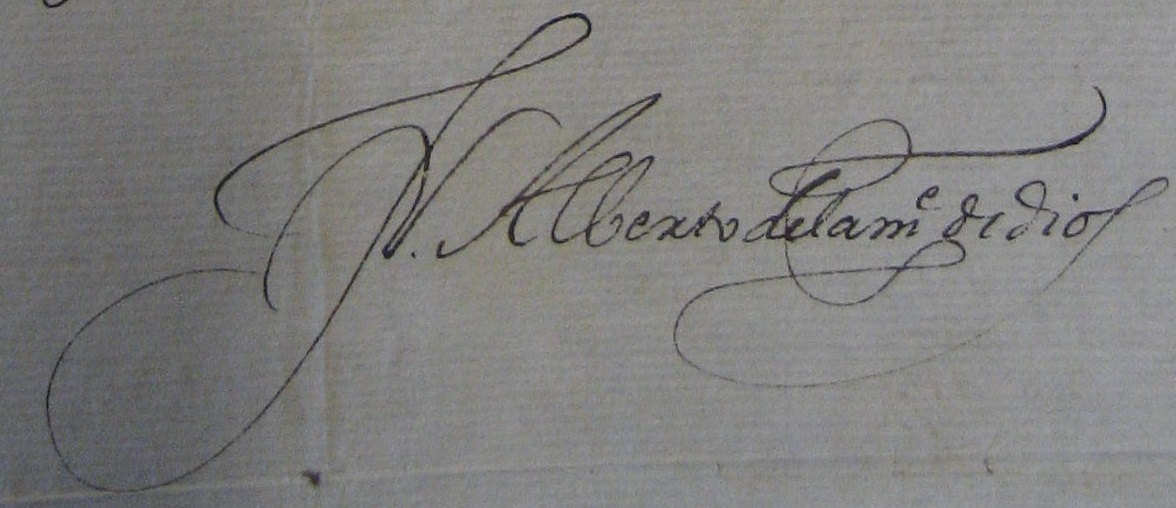 Fr. Alberto dela me de dios